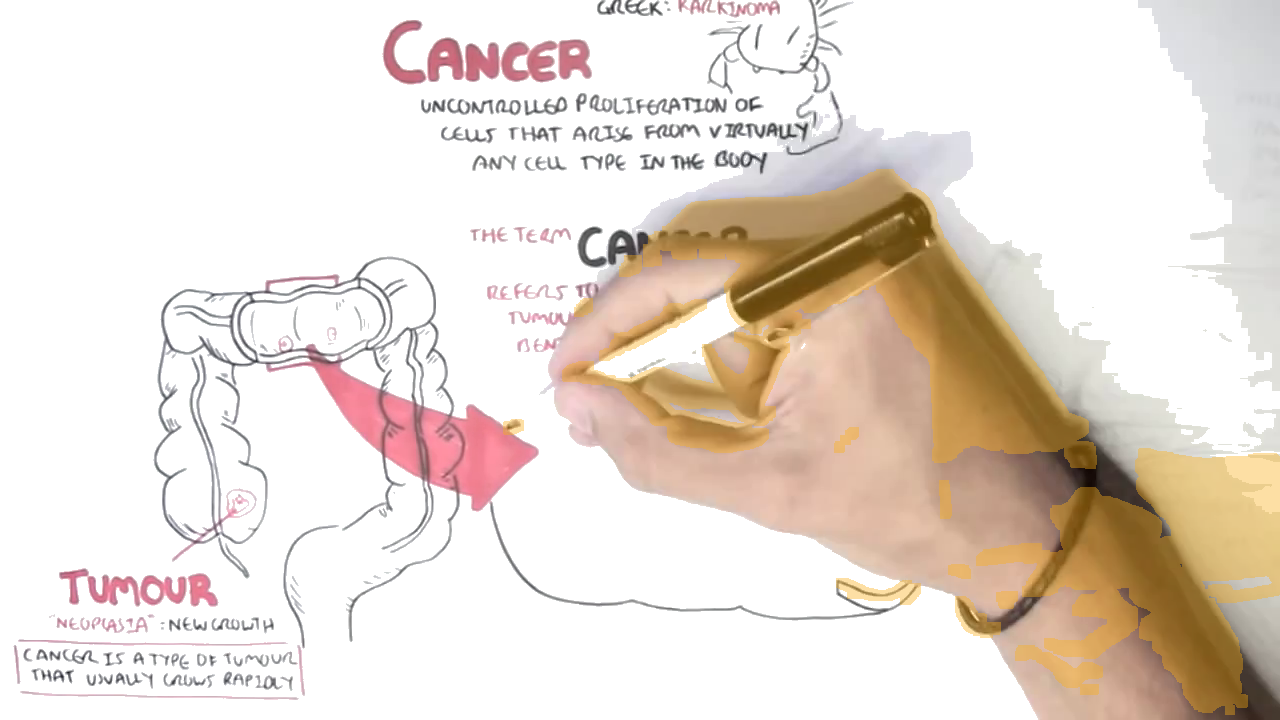 GREEK: KARKINOMA
CANCER
UNCONTROLLED PROLIFERATION OF
CELLS THAT ARISE FROM VIRTUALLY
ANY CELL TYPE IN THE BODY
THE TERM
REFERS TO
TUMOUR
"NEOPLASIA": NEW GROWTH
CANCER IS A TYPE OF TUMOUR
THAT USUALLY GROWS RAPIDLY